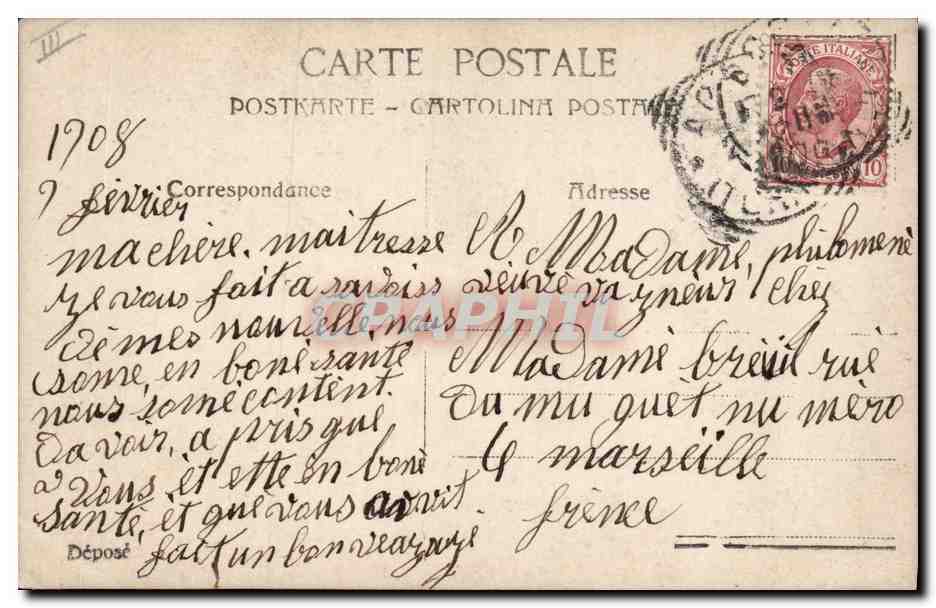 III
CARTE POSTALE
POSTKARTE – CARTOLINA POSTA
POSTE ITALIANE
10
1908
7 février
Correspondance
ma chère. maitresse
ze vous fait a savoir
dé mes nouvelle, nous
some, en boné santé
nous somé content.
Davoir, a pris que
vous, ét ette en boné
santé, et qué vous avvit.
fait un bon veazazé
Déposé
Adresse
A Madame, philomené
véuvé vazneur chéz
Madamé breuil rue
Du mu guét nu méro
4 marseille
frénce
CPAPHIL